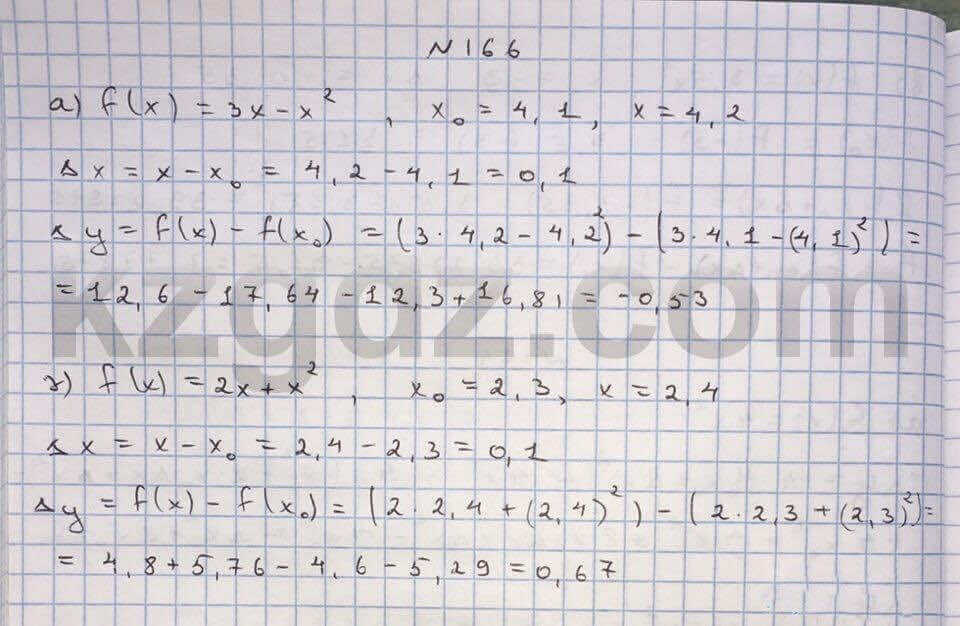 N166
а) f(x) = 3x - x², x₀ = 4,1, x = 4,2
Δx = x - x₀ = 4,2 - 4,1 = 0,1
Δy = f(x) - f(x₀) = (3·4,2 - 4,2²) - (3·4,1 - (4,1)²) =
= 12,6 - 17,64 - 12,3 + 16,81 = -0,53
kzgdz.com
г) f(x) = 2x + x², x₀ = 2,3, x = 2,4
Δx = x - x₀ = 2,4 - 2,3 = 0,1
Δy = f(x) - f(x₀) = (2·2,4 + (2,4)²) - (2·2,3 + (2,3)²) =
= 4,8 + 5,76 - 4,6 - 5,29 = 0,67